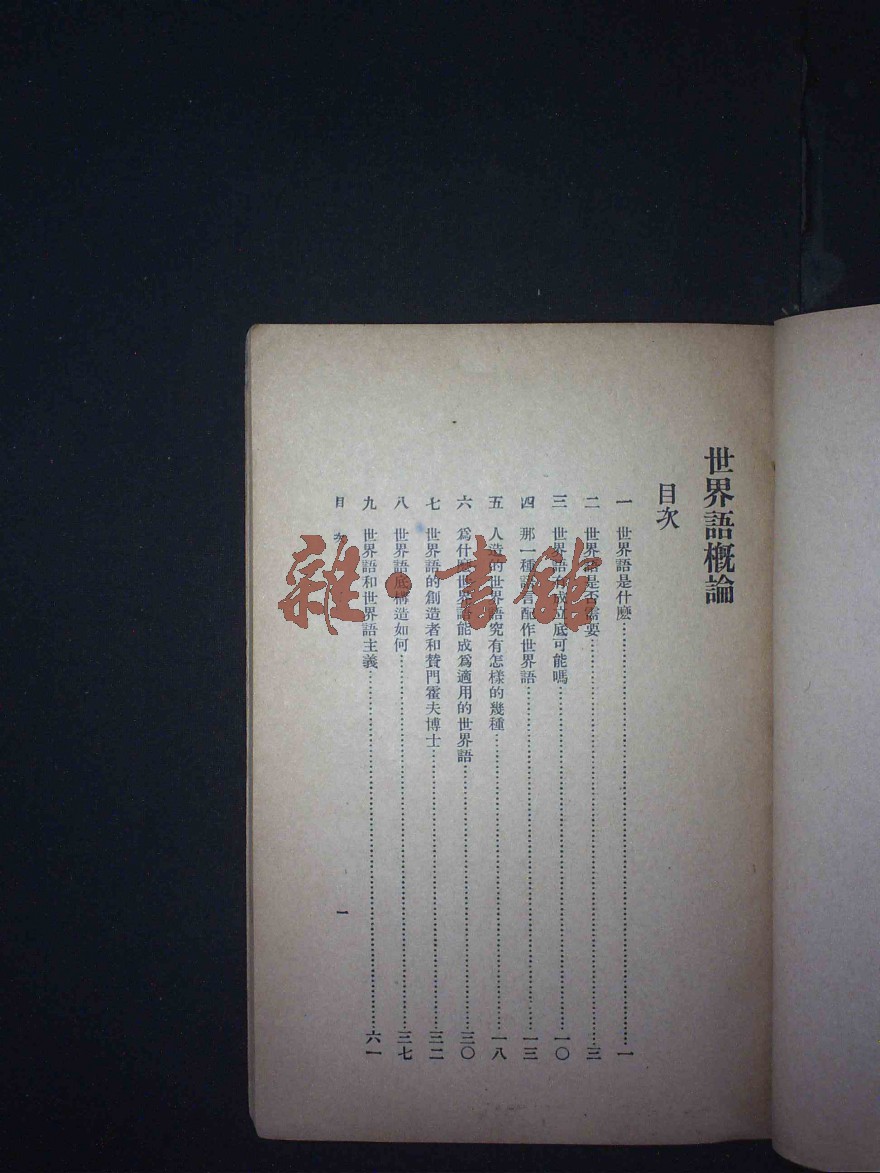 世界語概論
目次
一 世界語是什麼…………一
二 世界語是否需要…………三
三 世界語有成立底可能嗎…………一〇
四 那一種語言配作世界語…………一三
五 人造的世界語究有怎樣的幾種…………一八
六 爲什麼世界語能成爲適用的世界語…………三〇
七 世界語的創造者和贊門霍夫博士…………三二
八 世界語底構造如何…………三七
九 世界語和世界語主義…………六一
目次 一
雜·書館